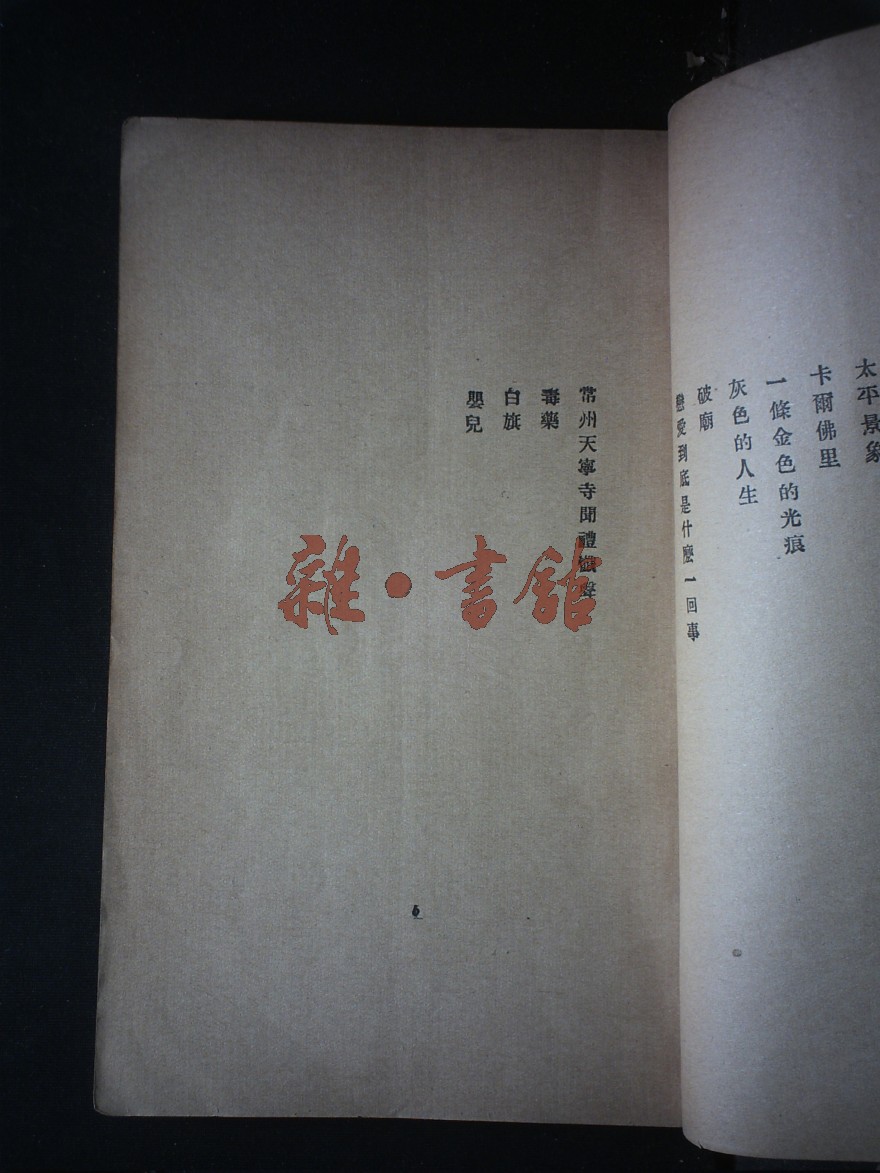 太平景象
卡爾佛里
一條金色的光痕
灰色的人生
破廟
戀愛到底是什麼一回事
常州天寧寺聞禮懺聲
毒藥
白旗
嬰兒
雜·書館
6